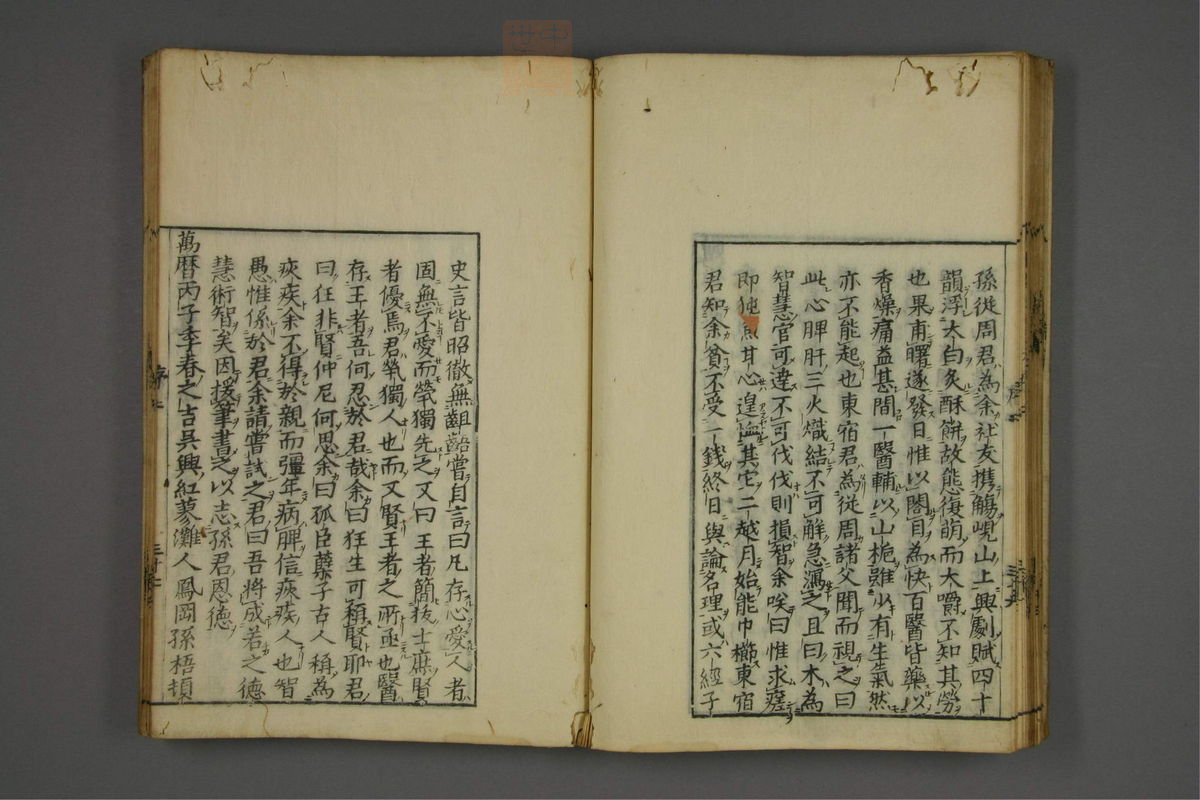 孫從周君為余社友携觴峴山上與劇賦四十
韻浮大白炙酥餅故態復萌而大嚼不知其勞
也果甫曙遂發日惟以闔目為快百醫皆藥以
香燥痛益甚間一醫輔以山梔雖少有生氣然
亦不能起也東宿君為從周諸父聞而視之曰
此心脾肝三火熾結不可解急瀉之且曰木為
智慧官可違不可伐伐則損智余唉曰惟求瘥
即 甘心遑恤其它二越月始能巾櫛東宿
君知余貧不受一錢終日與論名理或六經子
史言皆昭徹無齟齬嘗自言曰凡存心愛人者
固無不愛而煢獨先之又曰王者簡拔士庶賢
者優焉君煢獨人也而又賢王者之所亟也醫
存王者吾何忍於君哉余曰狂生可稱賢耶君
曰狂非賢仲尼何思余曰孤臣孽子古人稱為
疢疾余不得於親而彊年病脾信疢疾人也智
愚惟係於君余請嘗試之君曰吾將成若之德
慧術智矣因援筆書之以志孫君恩德
萬曆丙子季春之吉吳興紅蓼灘人鳳岡孫梧頓